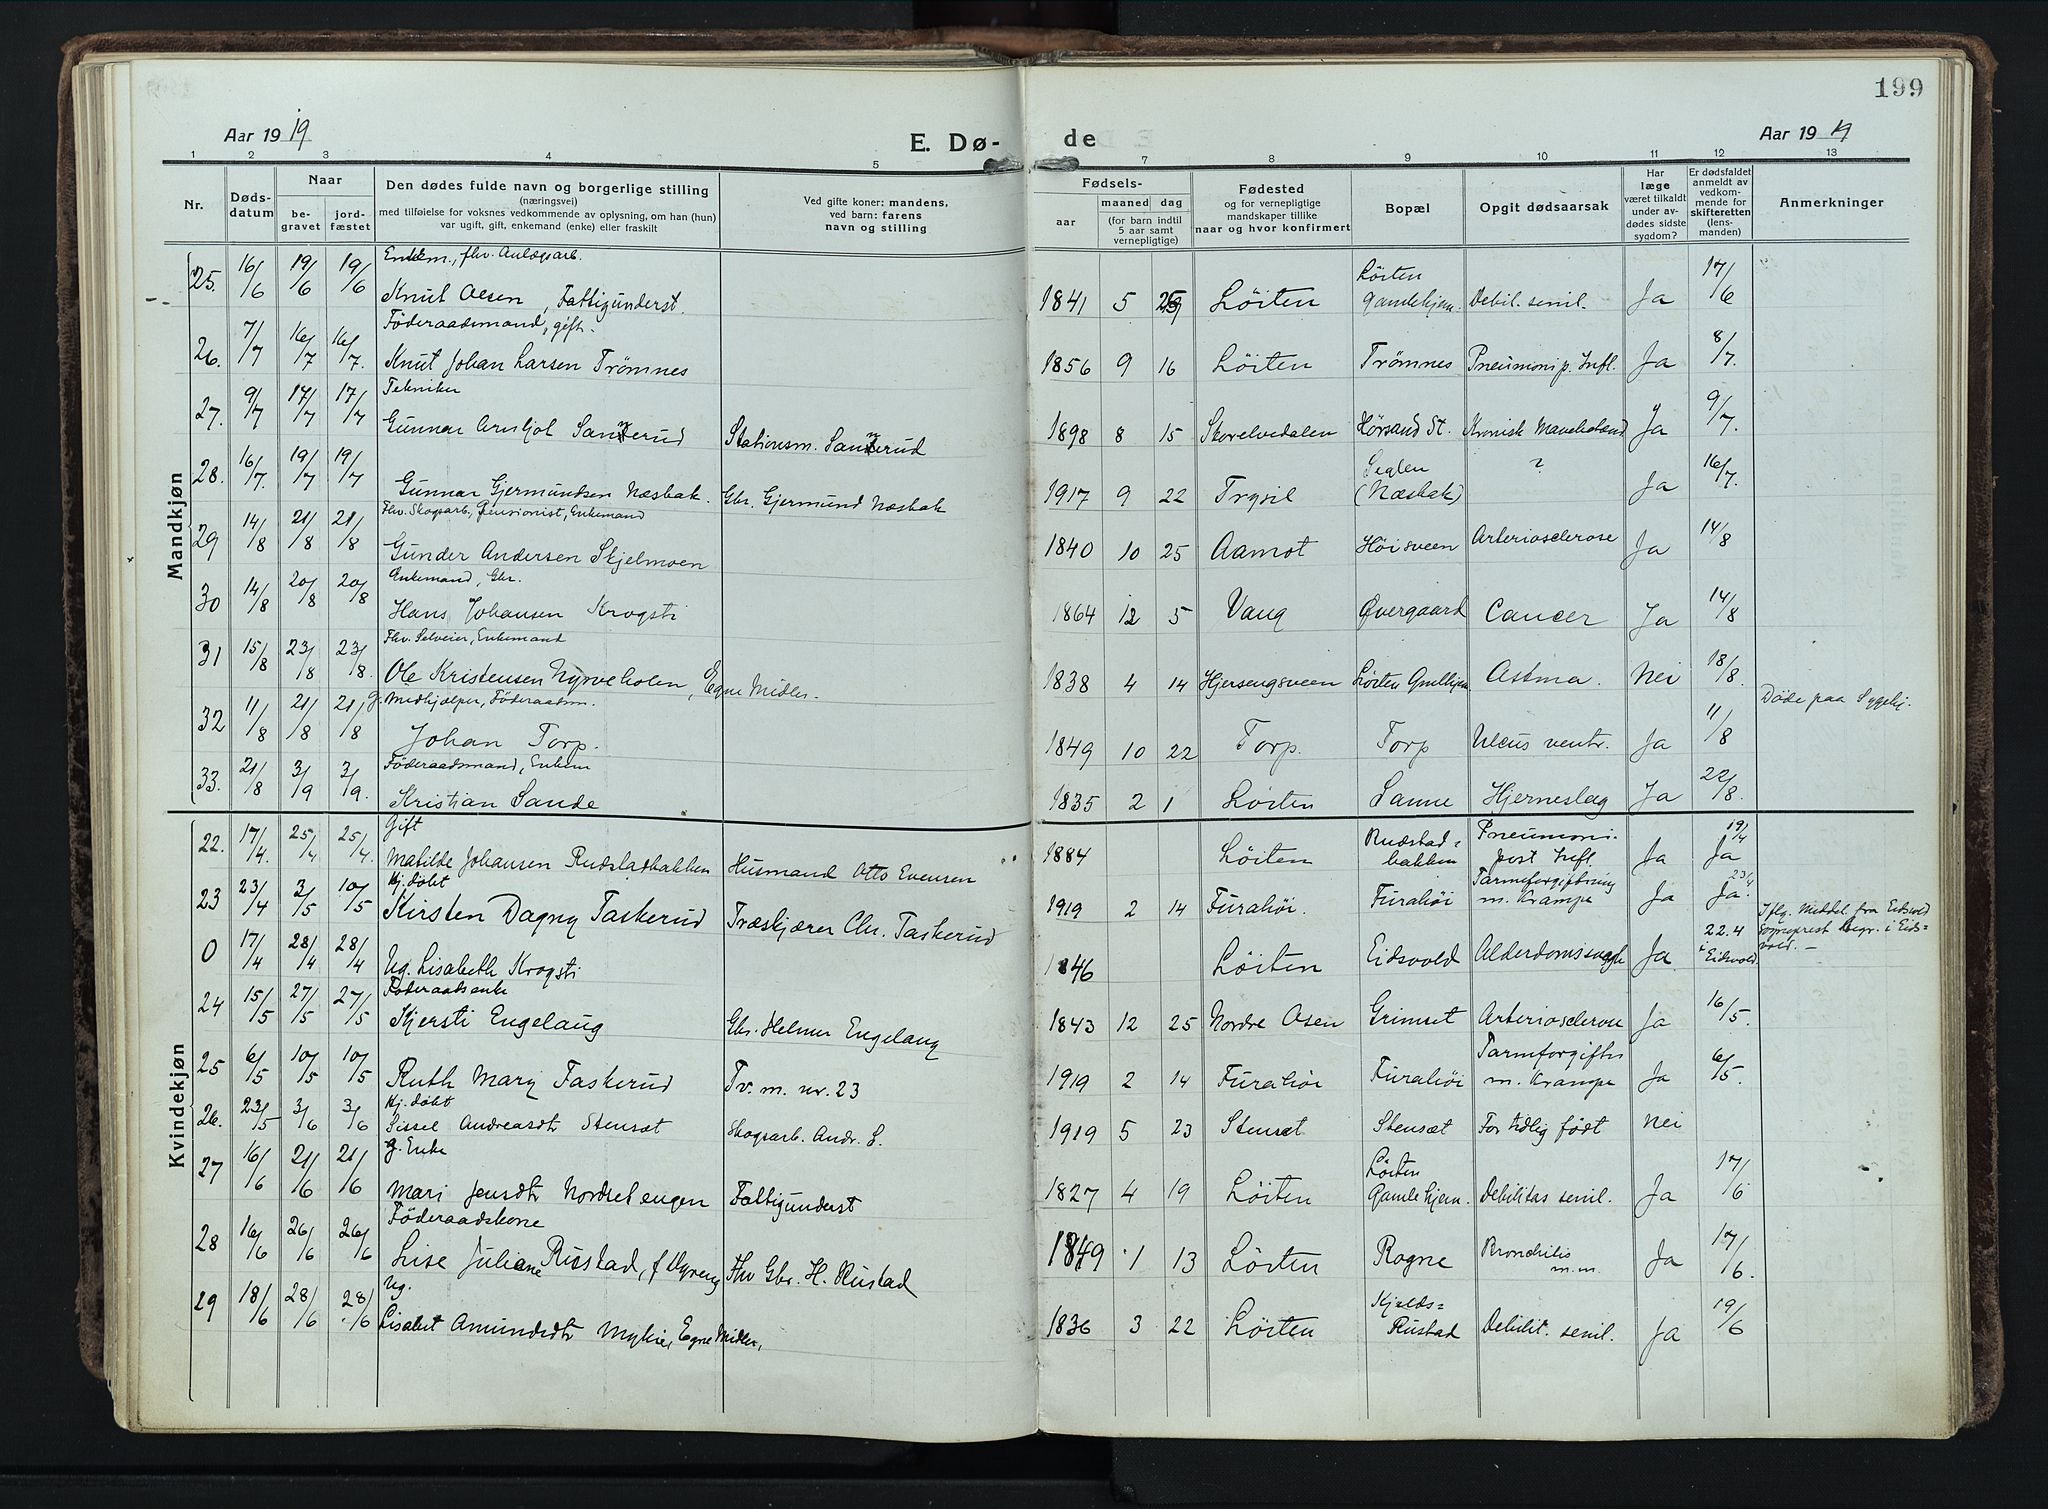 199
Aar 1919
E. Dø-
de
Aar 1919
1 2 3 4 5 7 8 9 10 11 12 13
Nr.
Døds-
datum
Naar
be-
gravet
jord-
fæstet
Den dødes fulde navn og borgerlige stilling
(næringsvei)
med tilføielse for voksnes vedkommende av oplysning, om han (hun)
var ugift, gift, enkemand (enke) eller fraskilt
Ved gifte koner: mandens,
ved barn: farens
navn og stilling
Fødsels-
aar
maaned dag
(for barn indtil
5 aar samt
vernepligtige)
Fødested
og for vernepligtige
mandskaper tillike
naar og hvor konfirmert
Bopæl
Opgit dødsaarsak
Har
læge
været tilkaldt
under av-
dødes sidste
sygdom?
Er dødsfaldet
anmeldt av
vedkom-
mende for
skifteretten
(lens-
manden)
Anmerkninger
Mandkjøn
Enkem., fhv. Anlægsarb.
25. 16/6 19/6 19/6 Knut Olsen, Fattigunderst. 1841 5 Löiten Löiten Gamlehjem. Debil. senil. Ja 17/6
Föderaadsmand, gift.
26. 7/7 16/7 16/7. Knut Johan Larsen Trømnes 1856 9 16 Löiten Trømnes Pneumoni p. Infl. Ja 8/7.
Tekniker
27. 9/7 17/7 17/7 Gunnar Arnljot Sannerud Stationsm. Sannerud 1898 8 15 Skorelvedalen Hörsand St. Kronisk Ja 9/7.
28. 16/7. 19/7 19/7 Gunnar Gjermundsen Næsbak. Gbr. Gjermund Næsbak 1917 9 22 Trysil Seglen (Næsbak) ? Ja 16/7.
Fhv. Skogsarb., Pensionist, Enkemand
29 14/8 21/8 21/8 Gunder Andersen Skjelmoen 1840 10 25 Aamot Höisveen Arteriosclerose Ja 14/8
Enkemand, Gbr.
30 14/8 20/8 20/8 Hans Johansen Krogsti 1864 12 5 Vang Øvergaard Cancer Ja 14/8
Fhv. Selveier, Enkemand
31 15/8 23/8 23/8. Ole Kristensen Nyrveholen, Egne Midler. 1838 4 14 Hjersengsveen Löiten Gmlhjem Astma. Nei 18/8.
g. Medhjælper, Föderaadsm.
32 11/8 21/8 21/8 Johan Torp. 1849 10 22 Torp. Torp Ulcus ventr. Ja 11/8 Døde paa Sygehj.
Föderaadsmand, Enkem
33. 21/8 3/9 3/9. Kristian Sande 1835 2 1 Löiten Sanne Hjerneslag Ja 22/8.
Kvindekjøn
Gift
22. 17/4. 25/4 25/4. Matilde Johansen Rudstadbakken Husmand Otto Evensen 1884 Löiten Rudstad=bakken Pneumoni post Infl. Ja 19/4 Ja
Hj. døbt
23 23/4 3/5 10/5 Kirsten Dagny Taskerud Træskjærer Chr. Taskerud 1919 2 14 Furahöi. Furahöi Tarmforgiftning m. Krampe Ja 23/4 Ja.
0 17/4 28/4 28/4 Ug. Lisabeth Krogsti 1846 Löiten Eidsvold Ja 22.4 i Eidsvold. Iflg. Meddel. fra Eidsvold Sogneprest begr. i Eids=vold. —
Föderaadsenke
24 15/5 27/5 27/5 Kjersti Engelaug Gbr. Helmer Engelaug 1843 12 25 Nordre Osen Grimset Arteriosclerose Ja 16/5.
25 6/5 10/5 10/5 Ruth Mary Taskerud Tv. m. nr. 23 1919 2 14 Furahöi Furahöi Tarmforgiftn m. Krampe Ja 6/5.
Hj. døbt
26. 23/5 3/6 3/6 Sissel Andreasdtr Stensæt Skogsarb. Andr. S. 1919 5 23 Stensæt Stensæt For tidlig født Nei
g. Enke
27 16/6 21/6 21/6 Mari Jensdtr Nordsetengen Fattigunderst 1827 4 19 Löiten Löiten Gamlehjem. Debilitas senil. Ja 17/6
Föderaadskone
28 16/6 26/6 26/6 Lise Juliane Rustad, f. Dyreng Fhv Gbr. H. Rustad 1849 1 13 Löiten Rogne Bronchitis m.m. Ja 17/6.
Ug.
29 18/6 28/6 28/6 Lisabet Amundsdtr Myhre, Egne Midler, 1836 3 22 Löiten Kjelds=Rustad Debilit. senil. Ja 19/6